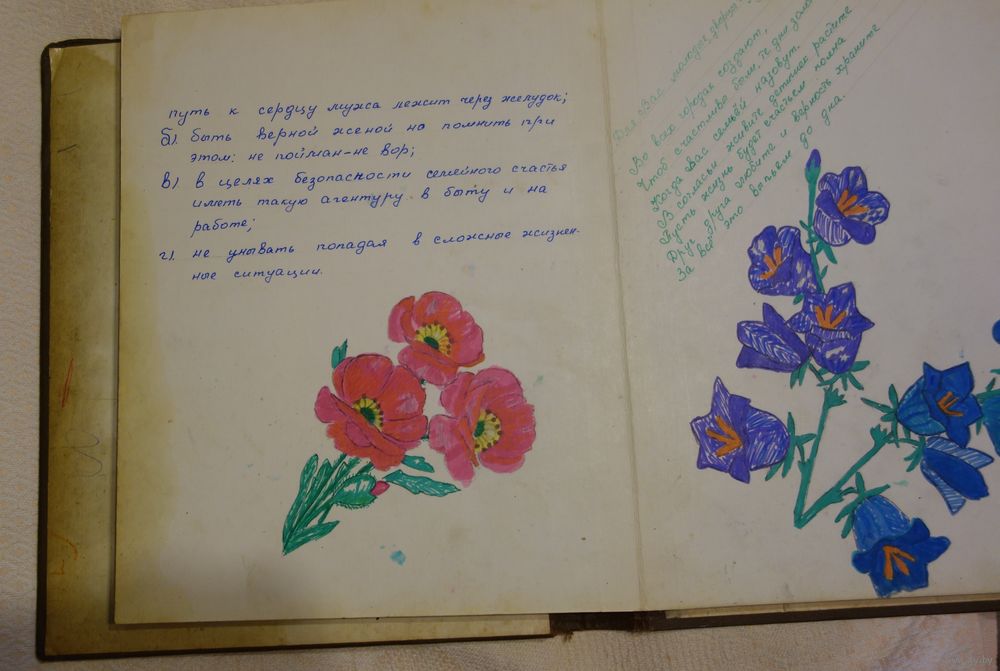 путь к сердцу мужа лежит через желудок;
б). быть верной женой но помнить при
этом: не пойман-не вор;
в). в целях безопасности семейного счастья
иметь такую агентуру в быту и на
работе;
г). не унывать попадая в сложные жизнен-
ные ситуации.
Для Вас, молодые, дворцы
Во всех городах создают,
Чтоб счастливые были те дни
Когда Вас семьёй назовут.
В согласьи живите детишек растите
Пусть жизнь будет счастьем полна
Друг друга любите и верность храните
За всё это выпьем до дна.